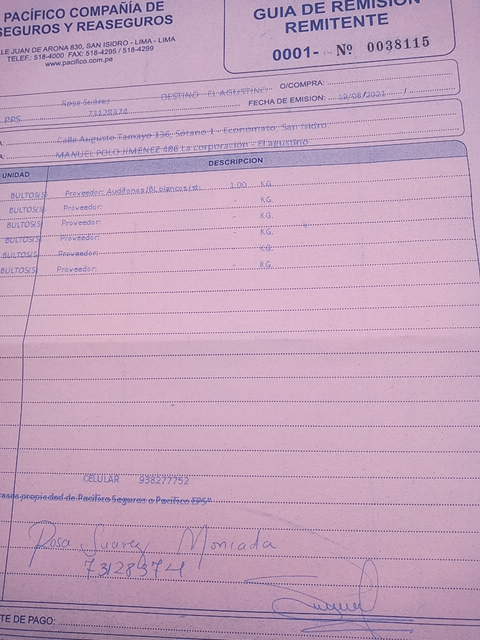 PACÍFICO COMPAÑÍA DE
SEGUROS Y REASEGUROS
LE JUAN DE ARONA 830, SAN ISIDRO - LIMA - LIMA
TELEF.: 518-4000 FAX: 518-4295 / 518-4299
www.pacifico.com.pe
GUIA DE REMISION
REMITENTE
0001- Nº 0038115
Rosa Suárez DESTINO EL AGUSTINO O/COMPRA:
PPS. 73128374 FECHA DE EMISION: 19/08/2021 /
Calle Augusto Tamayo 136, Sótano 1 - Economato, San Isidro
MANUEL POLO JIMÉNEZ 486 La corporación - El agustino
UNIDAD DESCRIPCION
BULTOS(S) Proveedor: Audífonos 1.00 KG.
BULTOS(S) Proveedor: - KG.
BULTOS(S) Proveedor: - KG.
BULTOS(S) Proveedor: - KG.
BULTOS(S) Proveedor: - KG.
BULTOS(S) Proveedor: - KG.
CELULAR 938277752
propiedad de Pacífico Seguros o Pacífico EPS"
Rosa Suarez Moncada
73128374
TE DE PAGO: